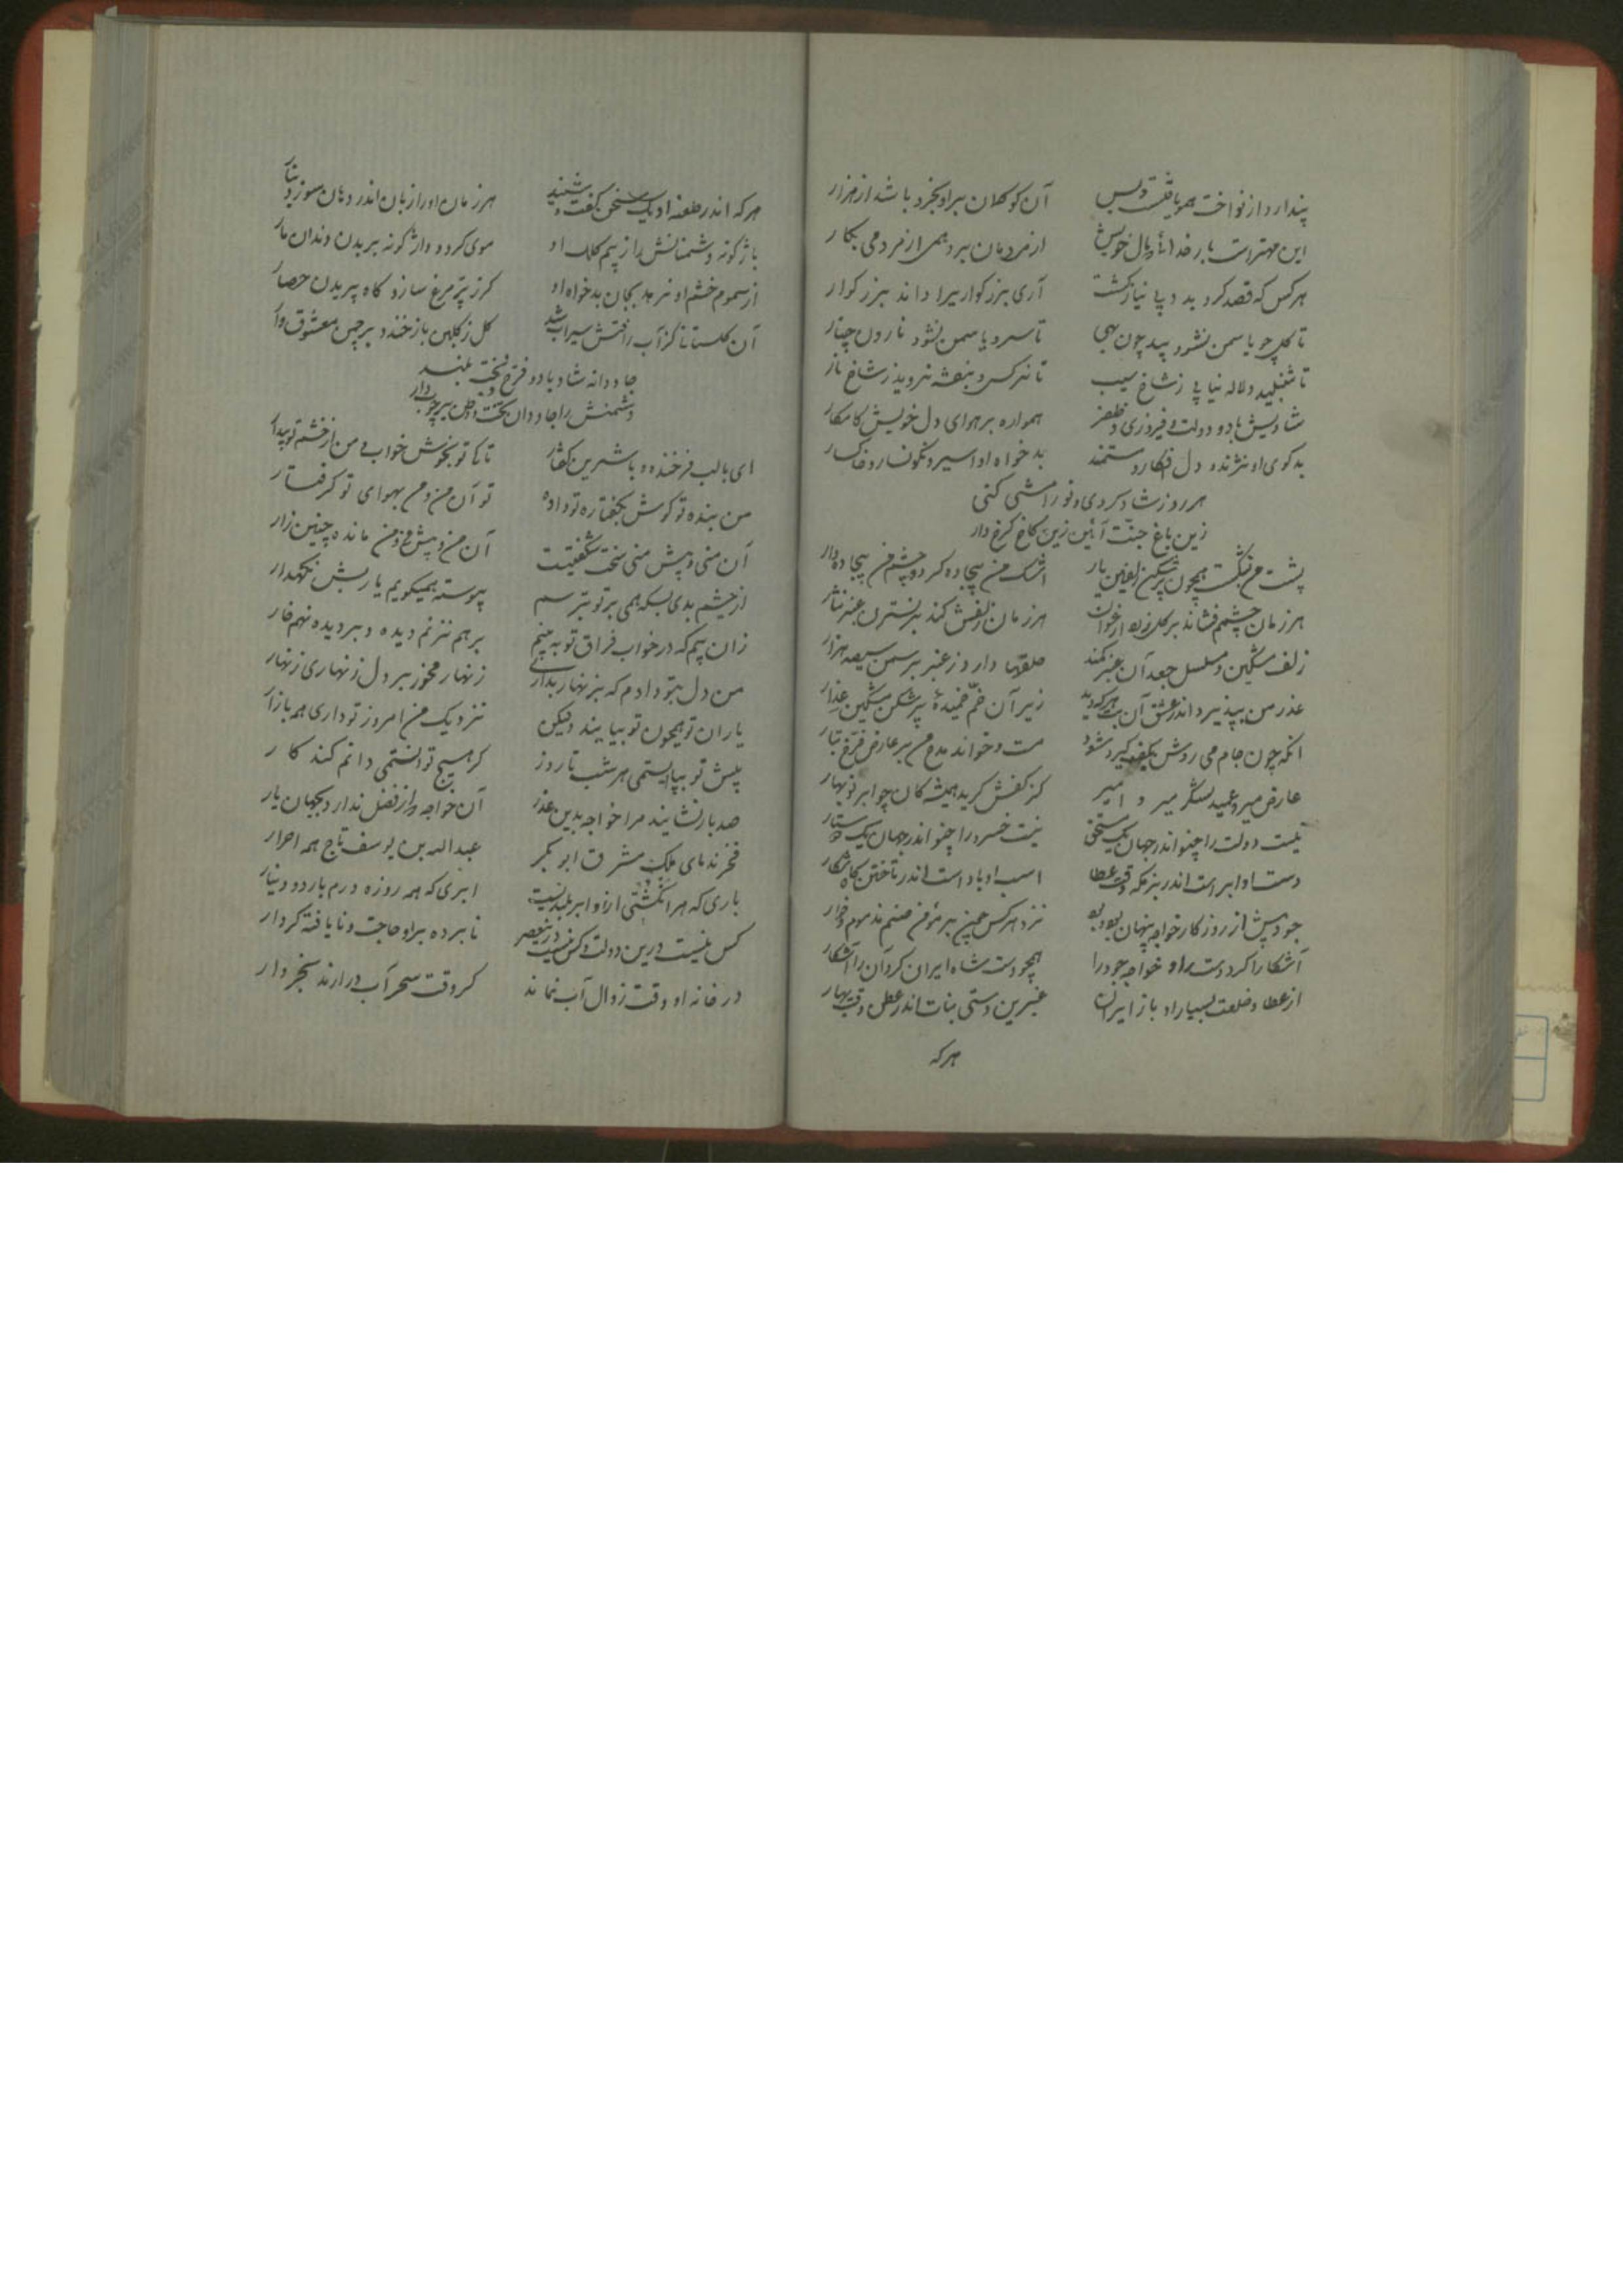 پندارد از نواخت همو یافتست و بس آن کو کلان براو بخرد باشد از هزار
این مهتر است بار خدا و ببال خویش از مردمان برد همی از مردمی بکار
هر کس که قصد کرد بدو بی نیاز گشت آری بزرگواری را داند بزرگوار
تا گل چو یاسمن نشود بید چون بهی تا سرو یاسمن نشود نارون چنار
تا شنبلید و لاله نیابی ز شاخ سیب تا نرگس و بنفشه نروید ز شاخ نار
شادیش باد و دولت و فیروزی و ظفر همواره بر هوای دل خویش کامکار
بدگوی او نژند و دل افکار و مستمند بدخواه او اسیر و نگونسار و خاکسار
هر روز شادی و رامشی کنی
زین باغ جنت آئین زین کاخ کرخ وار
پشت من بشکست همچون مشکین زلفین یار اشک من بیجاده کرد و چشم من بیجاده‌بار
هر زمان چشمم فشاند بر گل زرد ارغوان هر زمان زلفش کند بر نسترن عنبر نثار
زلف مشکین و مسلسل جعد آن عنبر کمند حلقها دارد ز عنبر بر سمن سیصد هزار
عذر من بپذیرد اندر عشق آن بت هر که دید زیر آن خم خمیدهٔ پر شکن مشکین عذار
آنکه چون جام می روشن بکف گیرد شود مست و خواند مدح من بر عارض فرخ تبار
عارض میر و عمید لشکر میر و امیر کز کفش گرید همیشه کان چو ابر نوبهار
نیست دولت را چنو اندر جهان یک مستحق نیست خسرو را چنو اندر جهان یک دوستار
دست او ابر است اندر بزمگه وقت عطا اسب او باد است اندر تاختن گاه شکار
جود پیش از روزگار خواجه پنهان بود بود نزد هر کس همچنین بر مؤمن صنم مذموم و خوار
آشکارا کرد دست راد خواجه جود را همچو دست شاه ایران کرد آن را آشکار
از عطا و خلعت بسیار او باز ایران عنبرین دستی بنات اندر عطن وقت بهار
هر که
هر که اندر طعنه او یک سخن گفت و شنید هر زمان او را زبان اندر دهان سوزد بنار
باژگونه دشمنانش را ز بیم کلک او موی گردد واژگونه بر بدن دندان مار
از سموم خشم او نرهد بجان بدخواه او گر ز پر مرغ سازد گاه پریدن حصار
آن گلستانی کز آب رافتش سیراب شد گل ز گلبن باز خندد بر چمن معشوق وار
جاودانه شاد بادو فرخ و بخت بلند
دشمنش را جاودان تخت و وطن بر چوب دار
ای بالب فرخنده و با شیرین گفتار تا کی تو بخوش خواب و من از خشم تو بیدار
من بنده تو گوش بگفتار تو داده تو آن من و من بهوای تو گرفتار
آن منی و پیش منی سخت شگفتیست آن من و پیش من و من مانده چنین زار
از چشم بدی بسکه همی بر تو بترسم پیوسته همیگویم یا ربش نگهدار
زان بیم که در خواب فراق تو ببینم بر هم نزنم دیده و بر دیده نهم خار
من دل بتو دادم که بزنهار بداری زنهار مخور بر دل زنهاری زنهار
یاران تو همچون تو بیایند ولیکن نزدیک من امروز تو داری همه بازار
پیش تو بپا ایستمی هر شب تا روز گر هیچ توانستمی دانم کند کار
صد بار نشایند مرا خواجه بدین عذر آن خواجه که از فضل ندارد بجهان یار
فخر ندمای ملک مشرق ابو بکر عبدالله بن یوسف تاج همه احرار
باری که هر انگشتی ازو ابر بلندیست ابری که همه روزه درم بارد و دینار
کس نیست درین دولت و کس نیست درین عصر نابرده براو حاجت و نایافته کردار
در خانه او وقت زوال آب نماند گر وقت سحر آب درارند بخروار